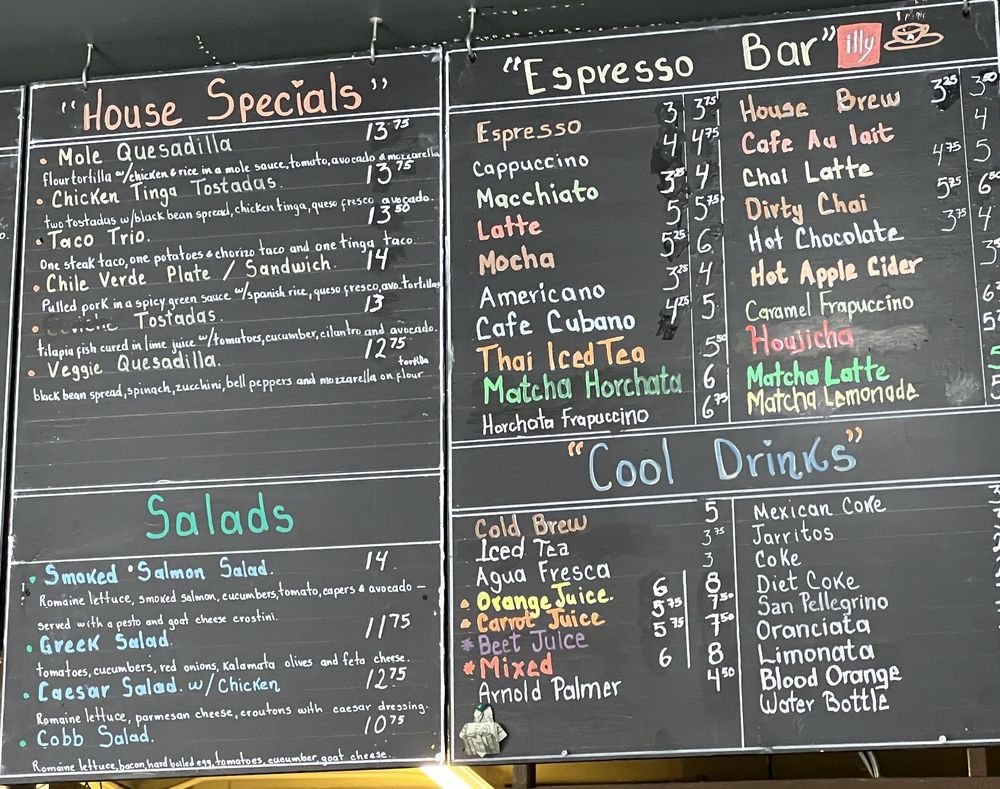 "House Specials"
• Mole Quesadilla 13.75
flour tortilla w/chicken & rice in a mole sauce, tomato, avocado & mozzarella
• Chicken Tinga Tostadas. 13.75
two tostadas w/black bean spread, chicken tinga, queso fresco avocado.
• Taco Trio. 13.50
One steak taco, one potatoes & chorizo taco and one tinga taco
• Chile Verde Plate / Sandwich. 14
Pulled pork in a spicy green sauce w/spanish rice, queso fresco, avo. tortillas
• Tostadas. 13
tilapia fish cured in lime juice w/tomatoes, cucumber, cilantro and avocado.
• Veggie Quesadilla. 12.75
black bean spread, spinach, zucchini, bell peppers and mozzarella on flour tortilla
Salads
• Smoked Salmon Salad. 14.
Romaine lettuce, smoked salmon, cucumbers, tomato, capers & avocado —
served with a pesto and goat cheese crostini.
• Greek Salad. 11.75
tomatoes, cucumbers, red onions, kalamata olives and feta cheese.
• Caesar Salad. w/ Chicken 12.75
Romaine lettuce, parmesan cheese, croutons with caesar dressing.
• Cobb Salad. 10.75
Romaine lettuce, bacon, hard boiled egg, tomatoes, cucumber, goat cheese.
"Espresso Bar" illy
Espresso 3 3.75
Cappuccino 4 4.75
Macchiato 4
Latte 5 5.75
Mocha 5.25 6
Americano 3.25 4
Cafe Cubano 4.25 5
Thai Iced Tea 5.50
Matcha Horchata 6
Horchata Frapuccino 6.75
House Brew 3.25
Cafe Au lait 4
Chai Latte 4.75 5
Dirty Chai 5.25
Hot Chocolate 3.75 4
Hot Apple Cider
Caramel Frapuccino
Houjicha
Matcha Latte
Matcha Lemonade
"Cool Drinks"
Cold Brew 5
Iced Tea 3.75
Agua Fresca 3
• Orange Juice. 6 8
• Carrot Juice 5.75 7.50
* Beet Juice 5.75 7.50
* Mixed 6 8
Arnold Palmer 4.50
Mexican Coke
Jarritos
Coke
Diet Coke
San Pellegrino
Oranciata
Limonata
Blood Orange
Water Bottle